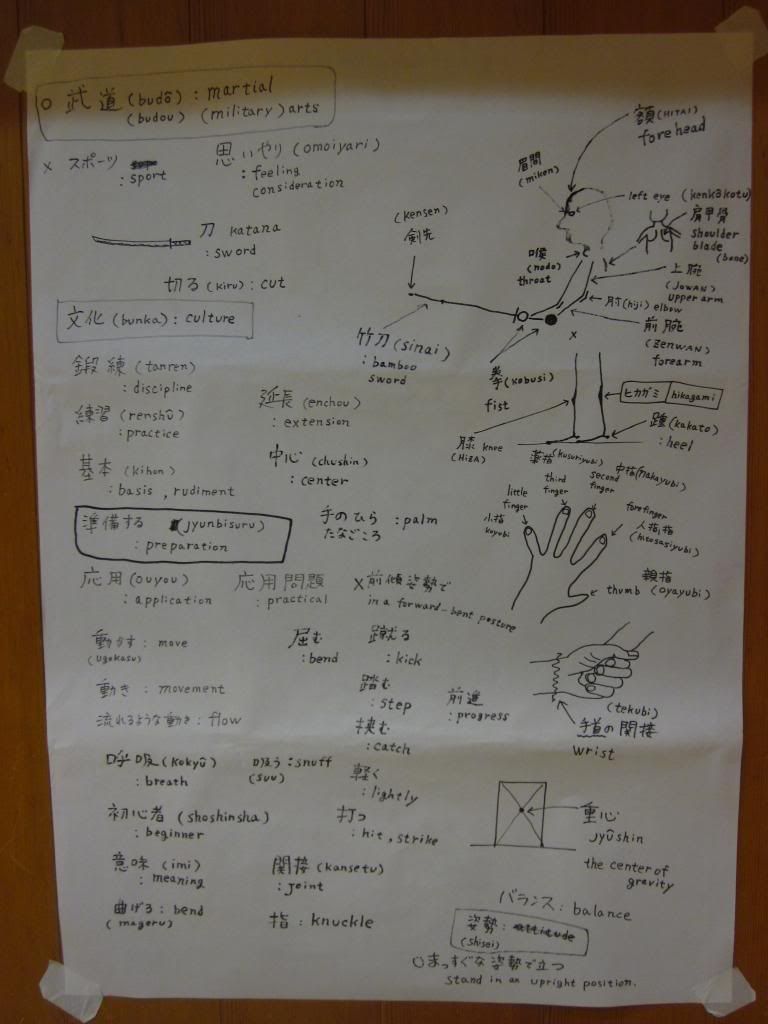 ○ 武道 (budô) : martial
(budou) (military) arts
× スポーツ
: sport
思いやり (omoiyari)
: feeling
consideration
刀 katana
: sword
切る (kiru) : cut
文化 (bunka) : culture
鍛練 (tanren)
: discipline
練習 (renshû)
: practice
基本 (kihon)
: basis , rudiment
延長 (enchou)
: extension
中心 (chushin)
: center
準備する (jyunbisuru)
: preparation
手のひら : palm
たなごころ
応用 (ouyou)
: application
応用問題
: practical
× 前傾姿勢で
in a forward-bent posture
動かす : move
(ugokasu)
屈む
: bend
蹴る
: kick
動き : movement
踏む
: step
前進
: progress
流れるような動き : flow
挟む
: catch
呼吸 (kokyû)
: breath
吸う : snuff
(suu)
軽く
: lightly
初心者 (shoshinsha)
: beginner
打つ
: hit , strike
意味 (imi)
: meaning
関接 (kansetu)
: joint
曲げる : bend
(mageru)
指 : knuckle
額 (HITAI)
forehead
眉間
(miken)
left eye
(kenkôkotu)
肩甲骨
shoulder
blade
(bone)
(kensen)
剣先
喉
(nodo)
throat
上腕
(JOWAN)
upper arm
肘 (hiji) elbow
前腕
(ZENWAN)
forearm
竹刀 (sinai)
: bamboo
sword
×
拳 (kobusi)
fist
ヒカガミ hikagami
踵 (kakato)
: heel
膝 knee
(HIZA)
薬指 (kusuriyubi)
third
finger
中指 (nakayubi)
second
finger
little
finger
小指
koyubi
forefinger
人指指
(hitosasiyubi)
親指
thumb (oyayubi)
(tekubi)
手首の関接
wrist
重心
jyûshin
the center of
gravity
バランス : balance
姿勢 : attitude
(shisei)
まっすぐな姿勢で立つ
stand in an upright position.